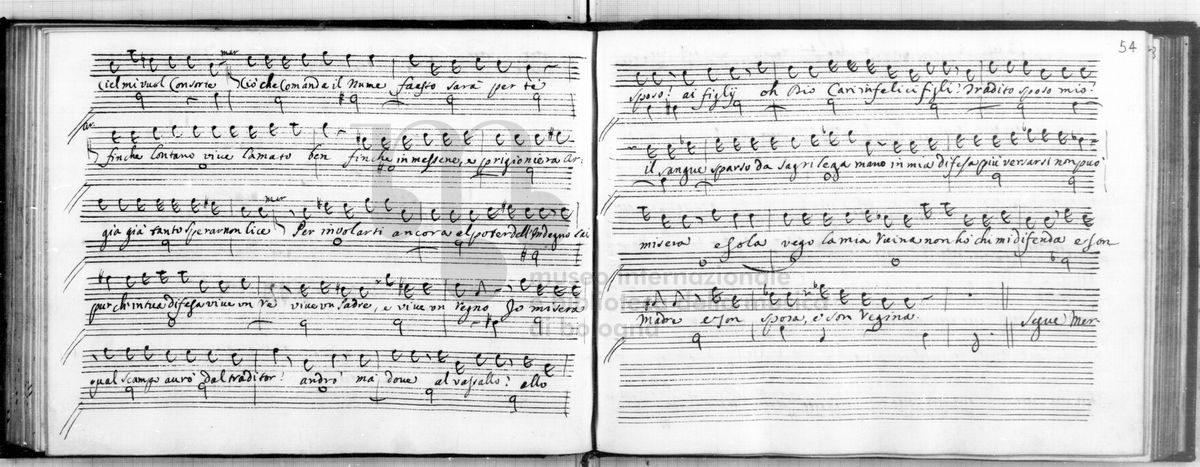 mer
ciel mi vuol Consorte Ciò che Comanda il Nume fausto sarà per te
finche lontano vive l'amato ben finche in messene, e prigioniera Ar:
mer
già già tanto sperar non lice Per involarti ancora al poter dell'Indegno Sai
pur ch'in tua difesa vive un Rè vive un Padre, e vive un Regno Io misera
qual scampo avrò dal traditor? andrò ma dove al vassallo? allo
54
sposo? ai figlij oh Dio Cari infelici figli? Tradito sposo mio?
il sangue sparso da sagrilega mano in mia difesa più versarsi non può
misera e sola vego la mia ruina non hò chi mi difenda e son
Madre e son sposa, e son Regina.
Segue Mer
museo internazionale
e biblioteca della musica
di bologna